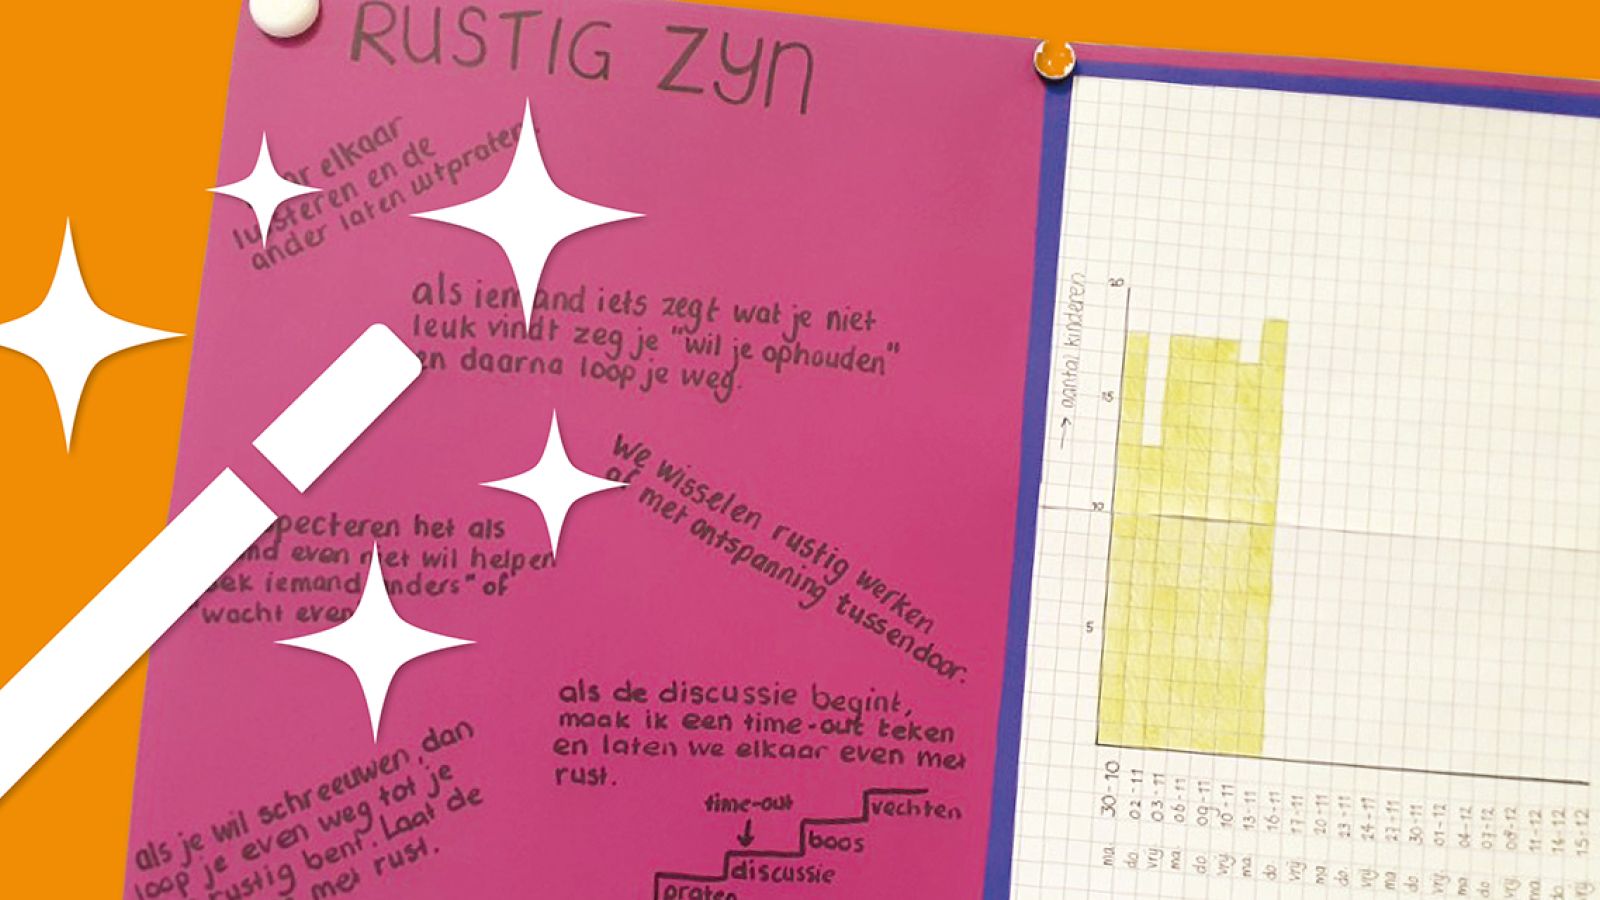 RUSTIG ZYN
elkaar
luisteren en de
ander laten uitpraten.
als iemand iets zegt wat je niet
leuk vindt zeg je "wil je ophouden"
en daarna loop je weg.
We wisselen rustig werken
af met ontspanning tussendoor.
het als
even niet wil helpen
iemand anders" of
"wacht even
als de discussie begint,
maak ik een time-out teken
en laten we elkaar even met
rust.
time-out
vechten
boos
discussie
praten
als je wil schreeuwen, dan
loop je even weg tot je
rustig bent. Laat de
met rust.
→ aantal kinderen
20
15
10
5
ma. 30-10
do. 02-11
vrij. 03-11
ma. 06-11
do. 09-11
vrij. 10-11
ma. 13-11
do. 16-11
vrij. 17-11
ma. 20-11
do. 23-11
vrij. 24-11
ma. 27-11
do. 30-11
vrij. 01-12
ma. 04-12
do. 07-12
vrij. 08-12
ma. 11-12
do. 14-12
vrij. 15-12